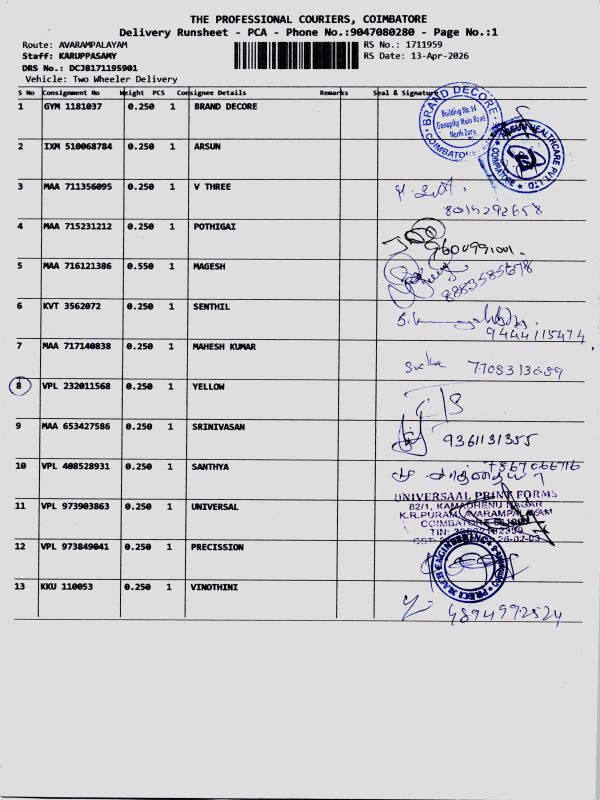 THE PROFESSIONAL COURIERS, COIMBATORE
Delivery Runsheet - PCA - Phone No.:9047080280 - Page No.:1
Route: AVARAMPALAYAM RS No.: 1711959
Staff: KARUPPASAMY RS Date: 13-Apr-2026
DRS No.: DCJB171195901
Vehicle: Two Wheeler Delivery
S No Consignment No Weight PCS Consignee Details Remarks Seal & Signature
1 GYM 1181037 0.250 1 BRAND DECORE
BRAND DECORE
Building No.14
Ganapthy Main Road
COIMBATORE
2 IXM 510068784 0.250 1 ARSUN
ARSUN HEALTHCARE PVT. LTD
COIMBATORE
3 MAA 711356095 0.250 1 V THREE
8015292658
4 MAA 715231212 0.250 1 POTHIGAI
9600991001.
5 MAA 716121386 0.550 1 MAGESH
8883585678
6 KVT 3562072 0.250 1 SENTHIL
9444115474
7 MAA 717140838 0.250 1 MAHESH KUMAR
Sudha 7708313089
8 VPL 232011568 0.250 1 YELLOW
9 MAA 653427586 0.250 1 SRINIVASAN
9361131355
10 VPL 408528931 0.250 1 SANTHYA
7867066116
11 VPL 973903863 0.250 1 UNIVERSAL
UNIVERSAAL PRINT FORMS
82/1, KAMADHENU NAGAR
K.R.PURAM, AVARAMPALAYAM
COIMBATORE
TIN:
12 VPL 973849041 0.250 1 PRECISSION
ENGINEERING
13 KKU 110053 0.250 1 VINOTHINI
4894992524